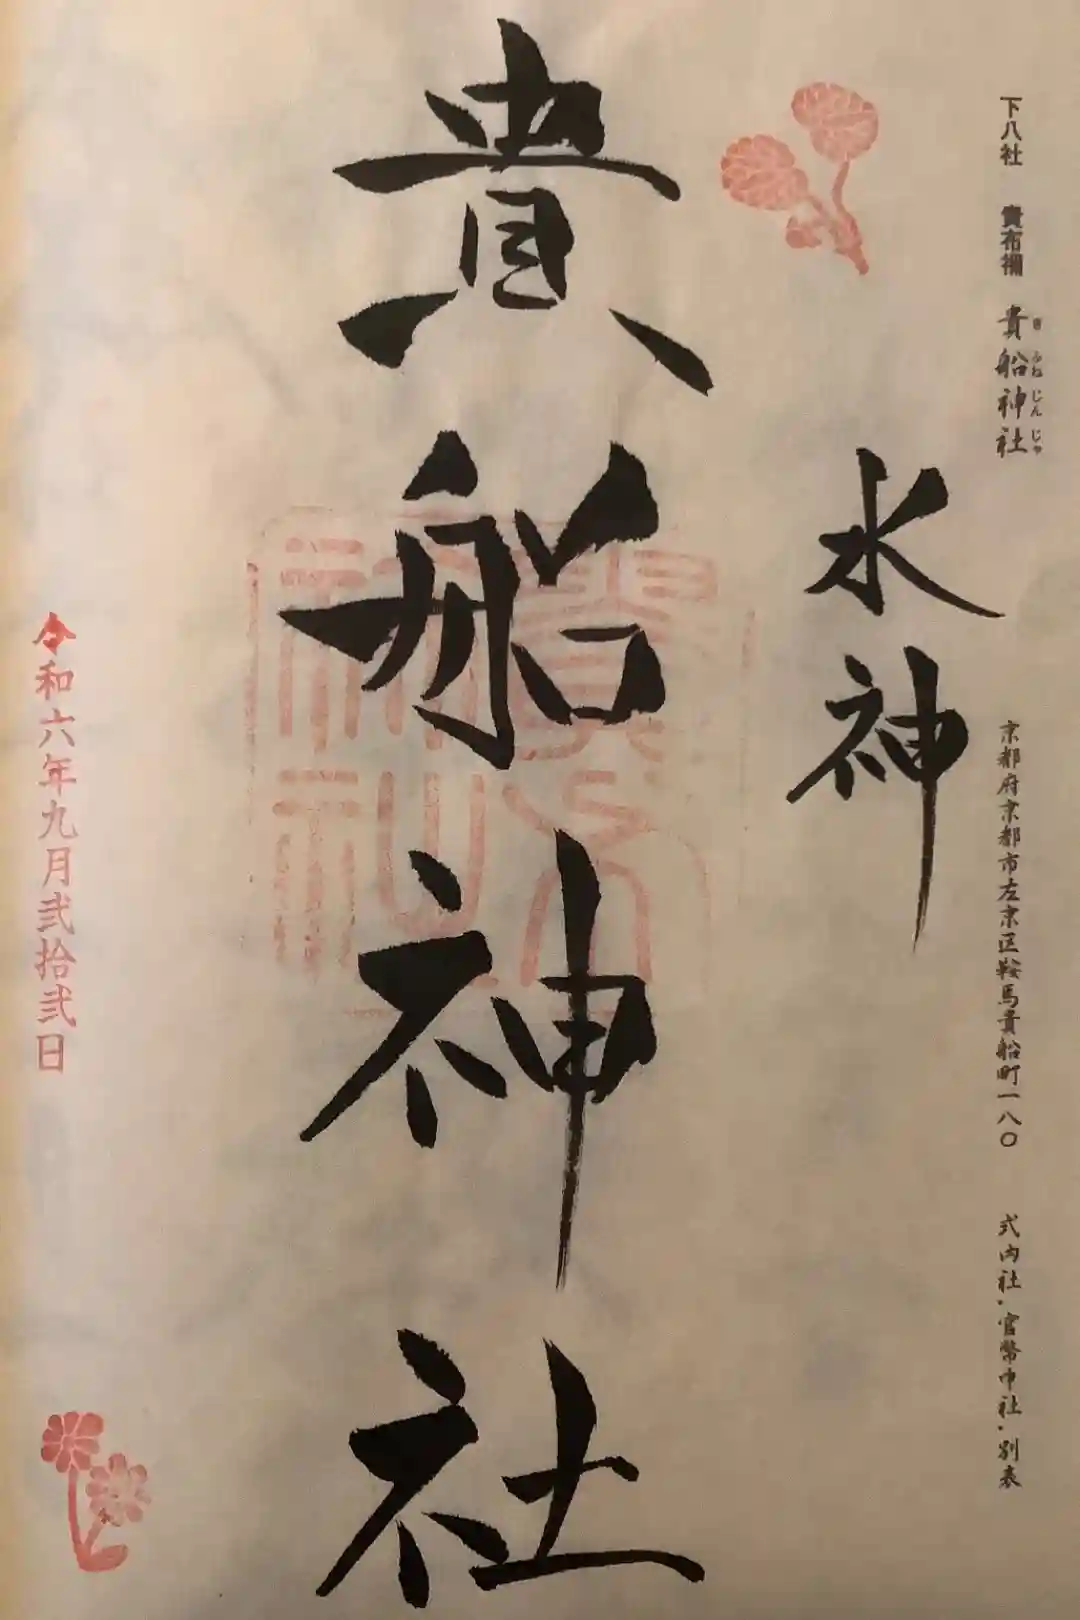 下八社　貴布禰　貴船神社
きふねじんじゃ
京都府京都市左京区鞍馬貴船町一八〇
式内社・官幣中社・別表
水神
貴船神社
令和六年九月弐拾弐日